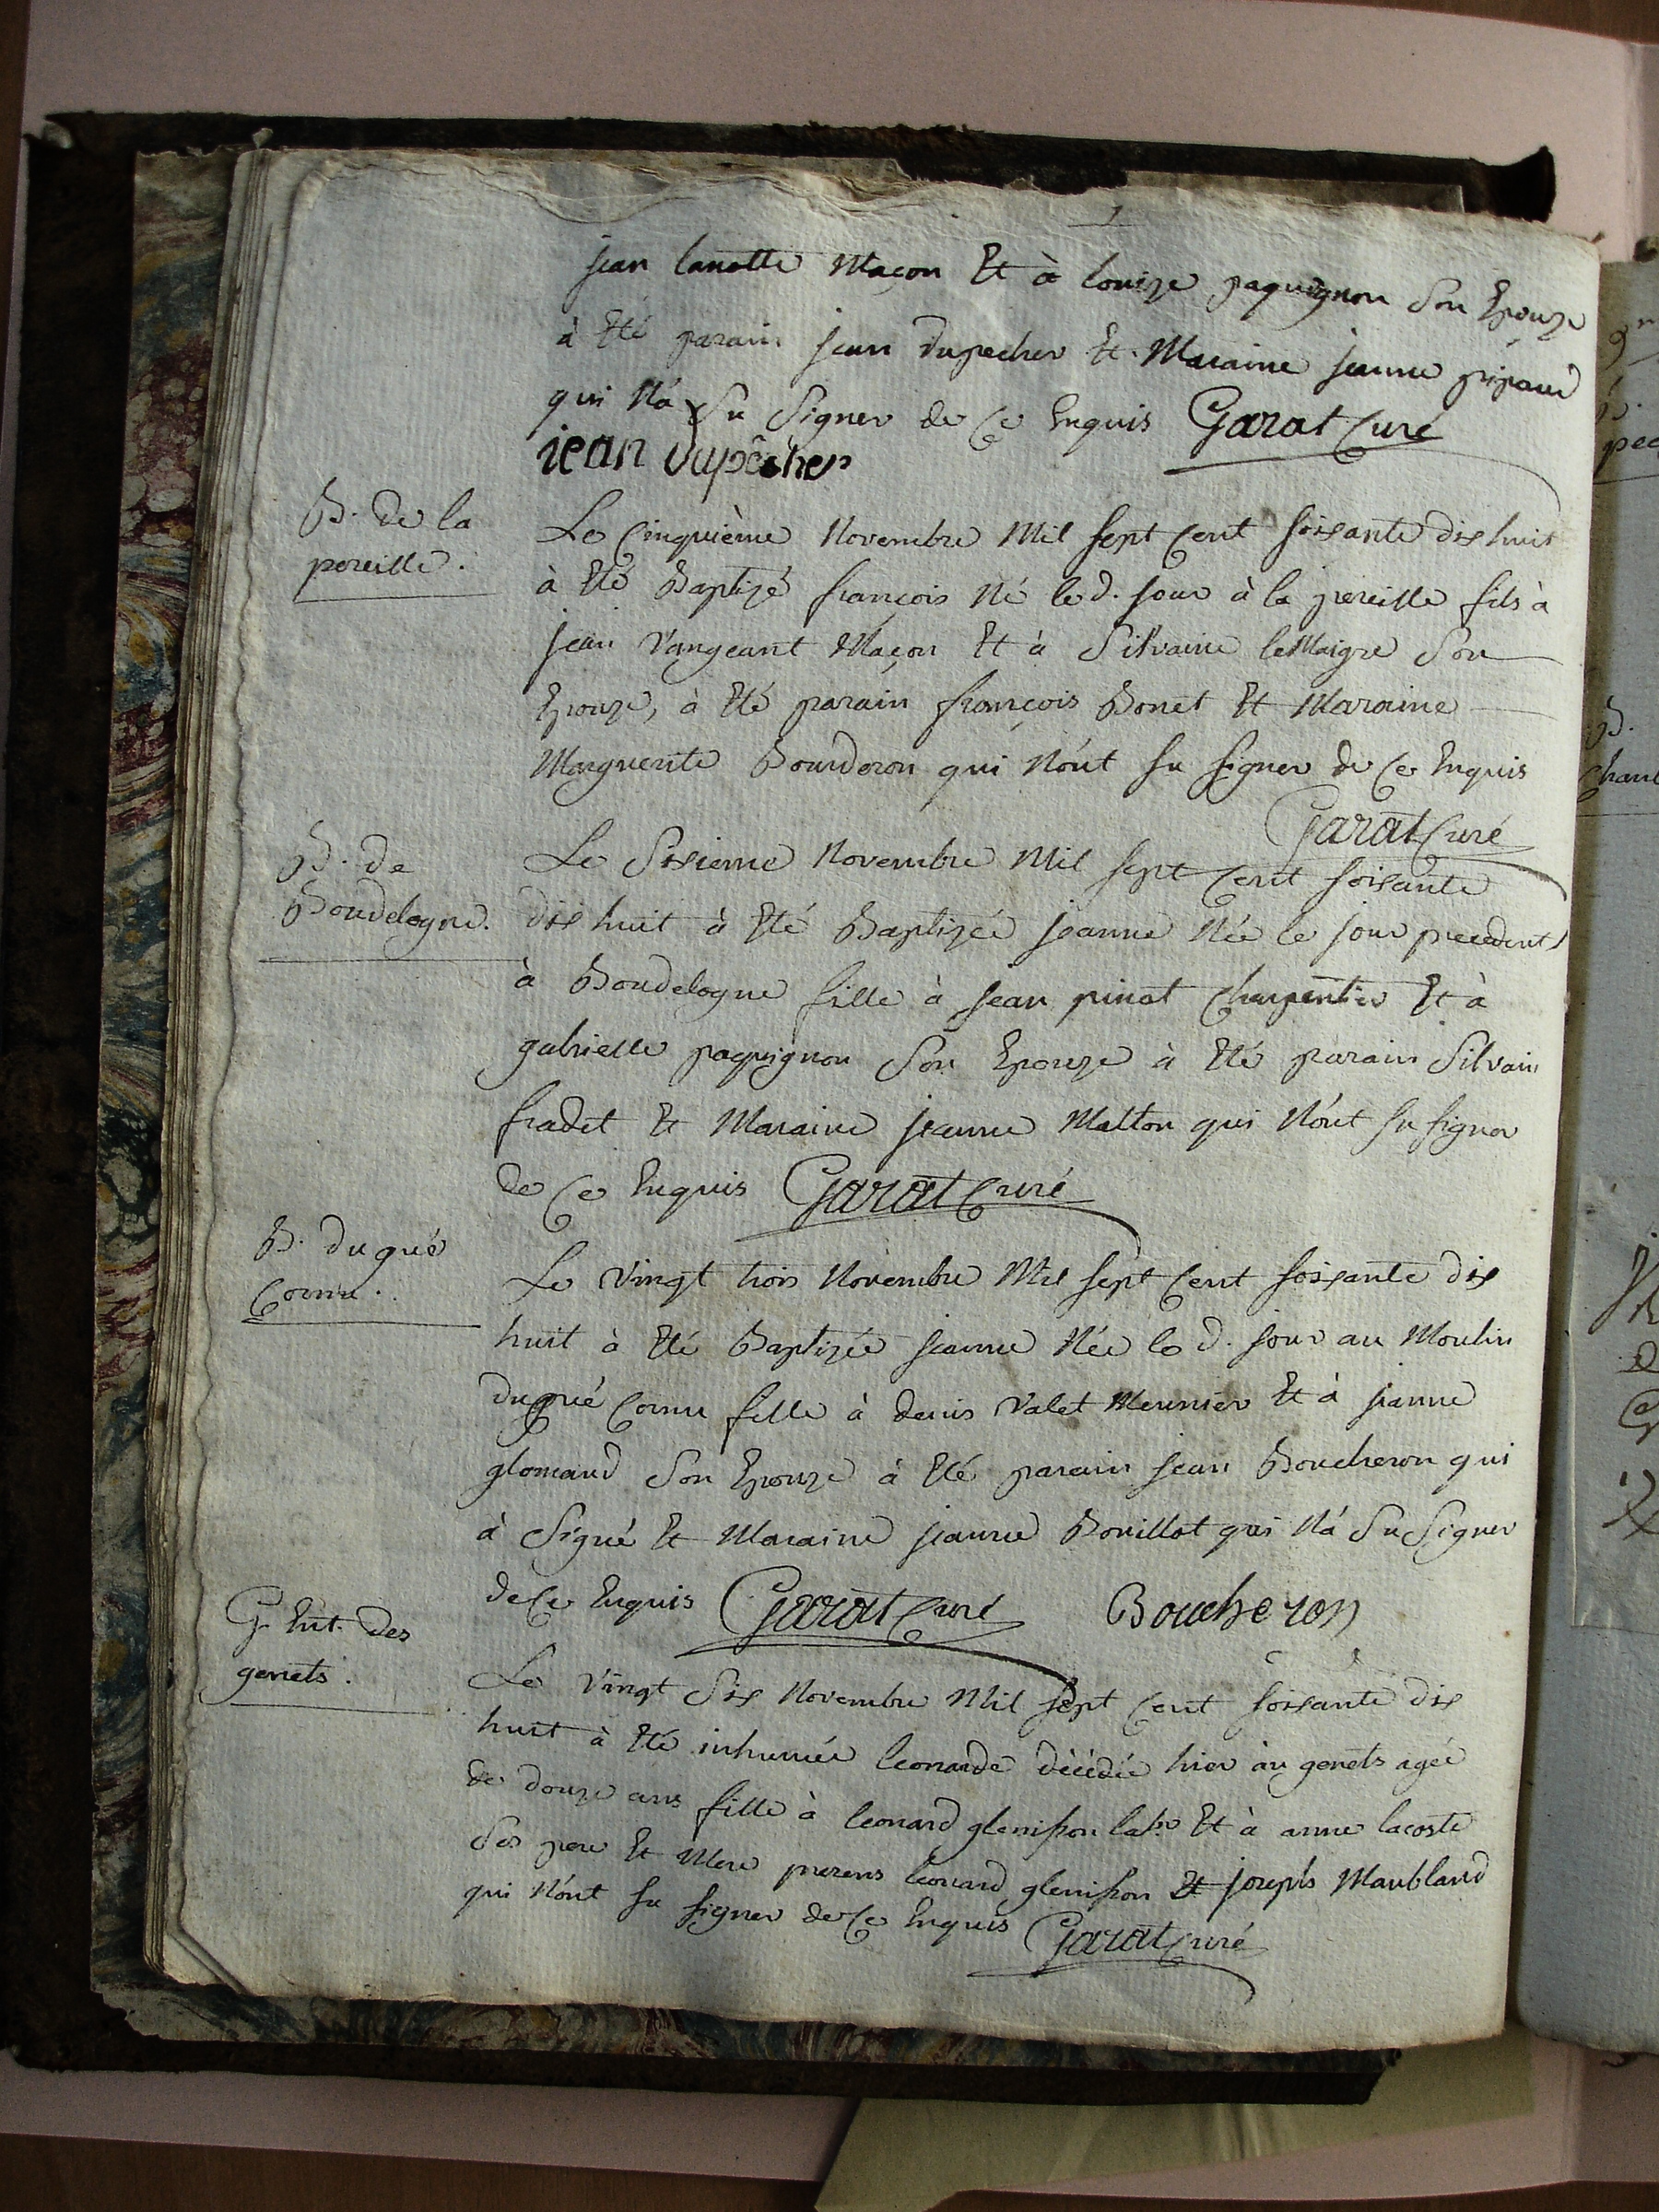 jean lanotte Maçon Et à louize paquignon Son Epouze
à Eté parain jean dupecher Et Maraine jeanne pipaud
qui N'a Su Signer de Ce Enquis Garat Curé
jean dupêcher
B. de la
pereille.
Le Cinquième Novembre Mil sept Cent soixante dix huit
à Eté Baptizé françois Né led. jour à la pereille fils à
jean Vangeant Maçon Et à Silvaine leMaigre Son
Epouze, à Eté parain françois Bonet Et Maraine
Marguerite Bourderon qui N'ont su signer de Ce Enquis
Garat Curé
B. de
Boudelogne.
Le Sixieme Novembre Mil sept Cent soixante
dix huit à Eté Baptizée jeanne Née le jour precedent
à Boudelogne fille à jean pinat Charpentier Et à
gabrielle paquignon Son Epouze à Eté parain Silvain
fradet Et Maraine jeanne Malton qui N'ont su signer
de Ce Enquis Garat Curé
B. du gué
Cornu.
Le Vingt trois Novembre Mil sept Cent soixante dix
huit à Eté Baptizée jeanne Née led. jour au Moulin
du gué Cornu fille à denis Valet Meunier Et à jeanne
glomaud Son Epouze à Eté parain jean Boucheron qui
à Signé Et Maraine jeanne Bouillot qui N'a Su Signer
de Ce Enquis Garat Curé Boucheron
G. Ent. des
genets.
Le Vingt Six Novembre Mil sept Cent soixante dix
huit à Eté inhumée leonarde décédée hier au genets agée
de douze ans fille à leonard glenisson labr. Et à anne lacoste
Ses pere Et Mere presens leonard glenisson Et joseph Maubland
qui N'ont su signer de Ce Enquis Garat Curé